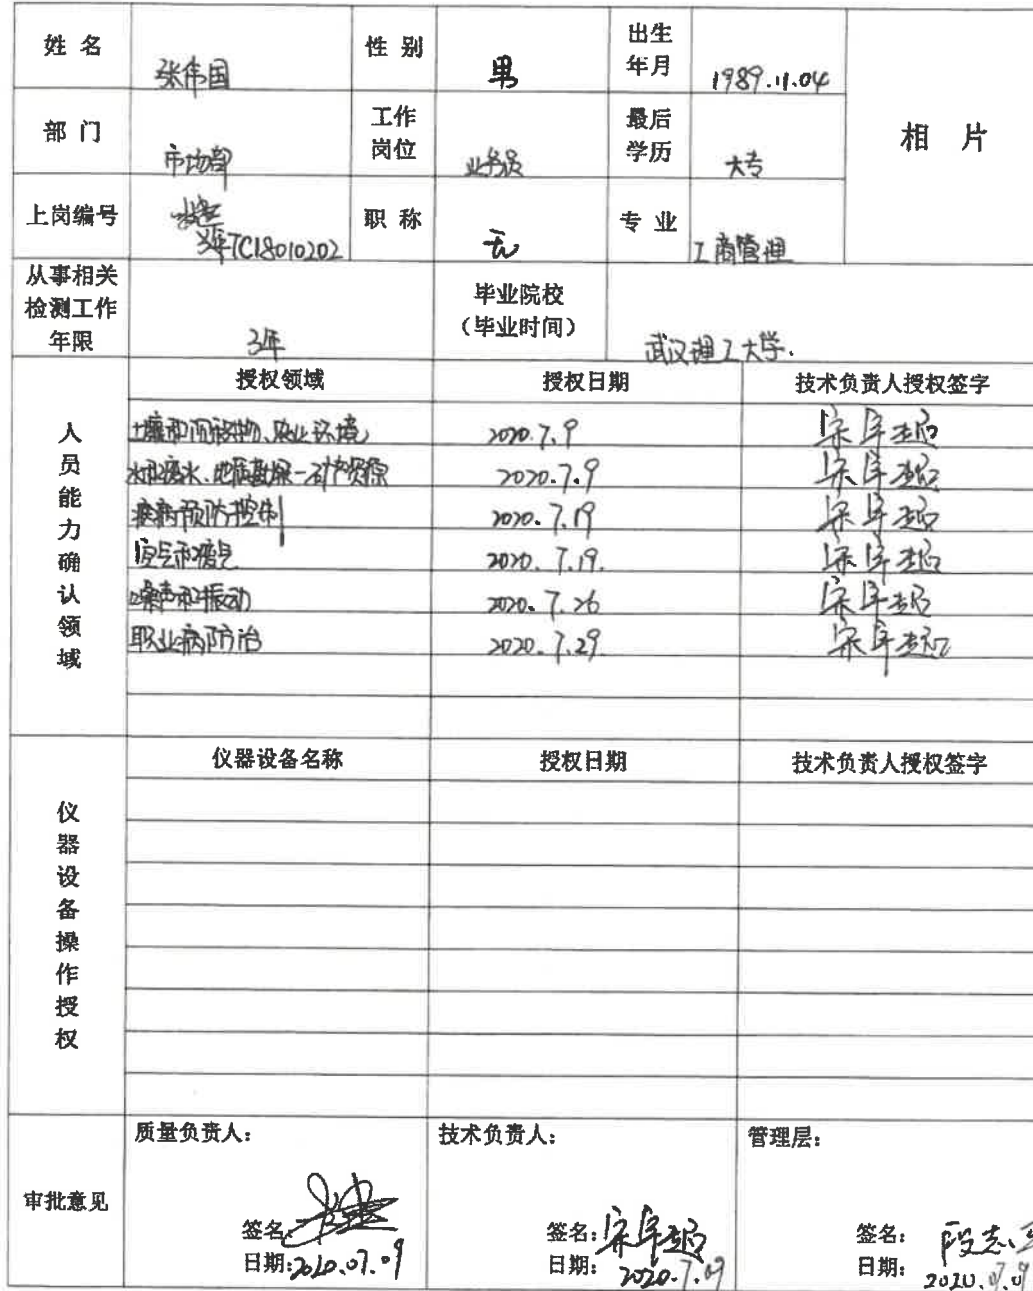 姓 名 张伟国 性 别 男 出生年月 1989.11.04 相 片
部 门 市场部 工作岗位 业务员 最后学历 大专
上岗编号 TC18010202 职 称 无 专 业 工商管理
从事相关检测工作年限 3年 毕业院校(毕业时间) 武汉理工大学.
人员能力确认领域 授权领域 授权日期 技术负责人授权签字
土壤和沉积物、 环境 2020.7.9
水和废水、 2020.7.9
疾病预防控制 2020.7.19
空气和废气 2020.7.19.
噪声和振动 2020.7.26
职业病防治 2020.7.29.
仪器设备操作授权 仪器设备名称 授权日期 技术负责人授权签字
审批意见 质量负责人: 技术负责人: 管理层:
签名: 签名: 签名: 段志
日期:2020.07.09 日期: 2020.7.09 日期: 2020.07.09